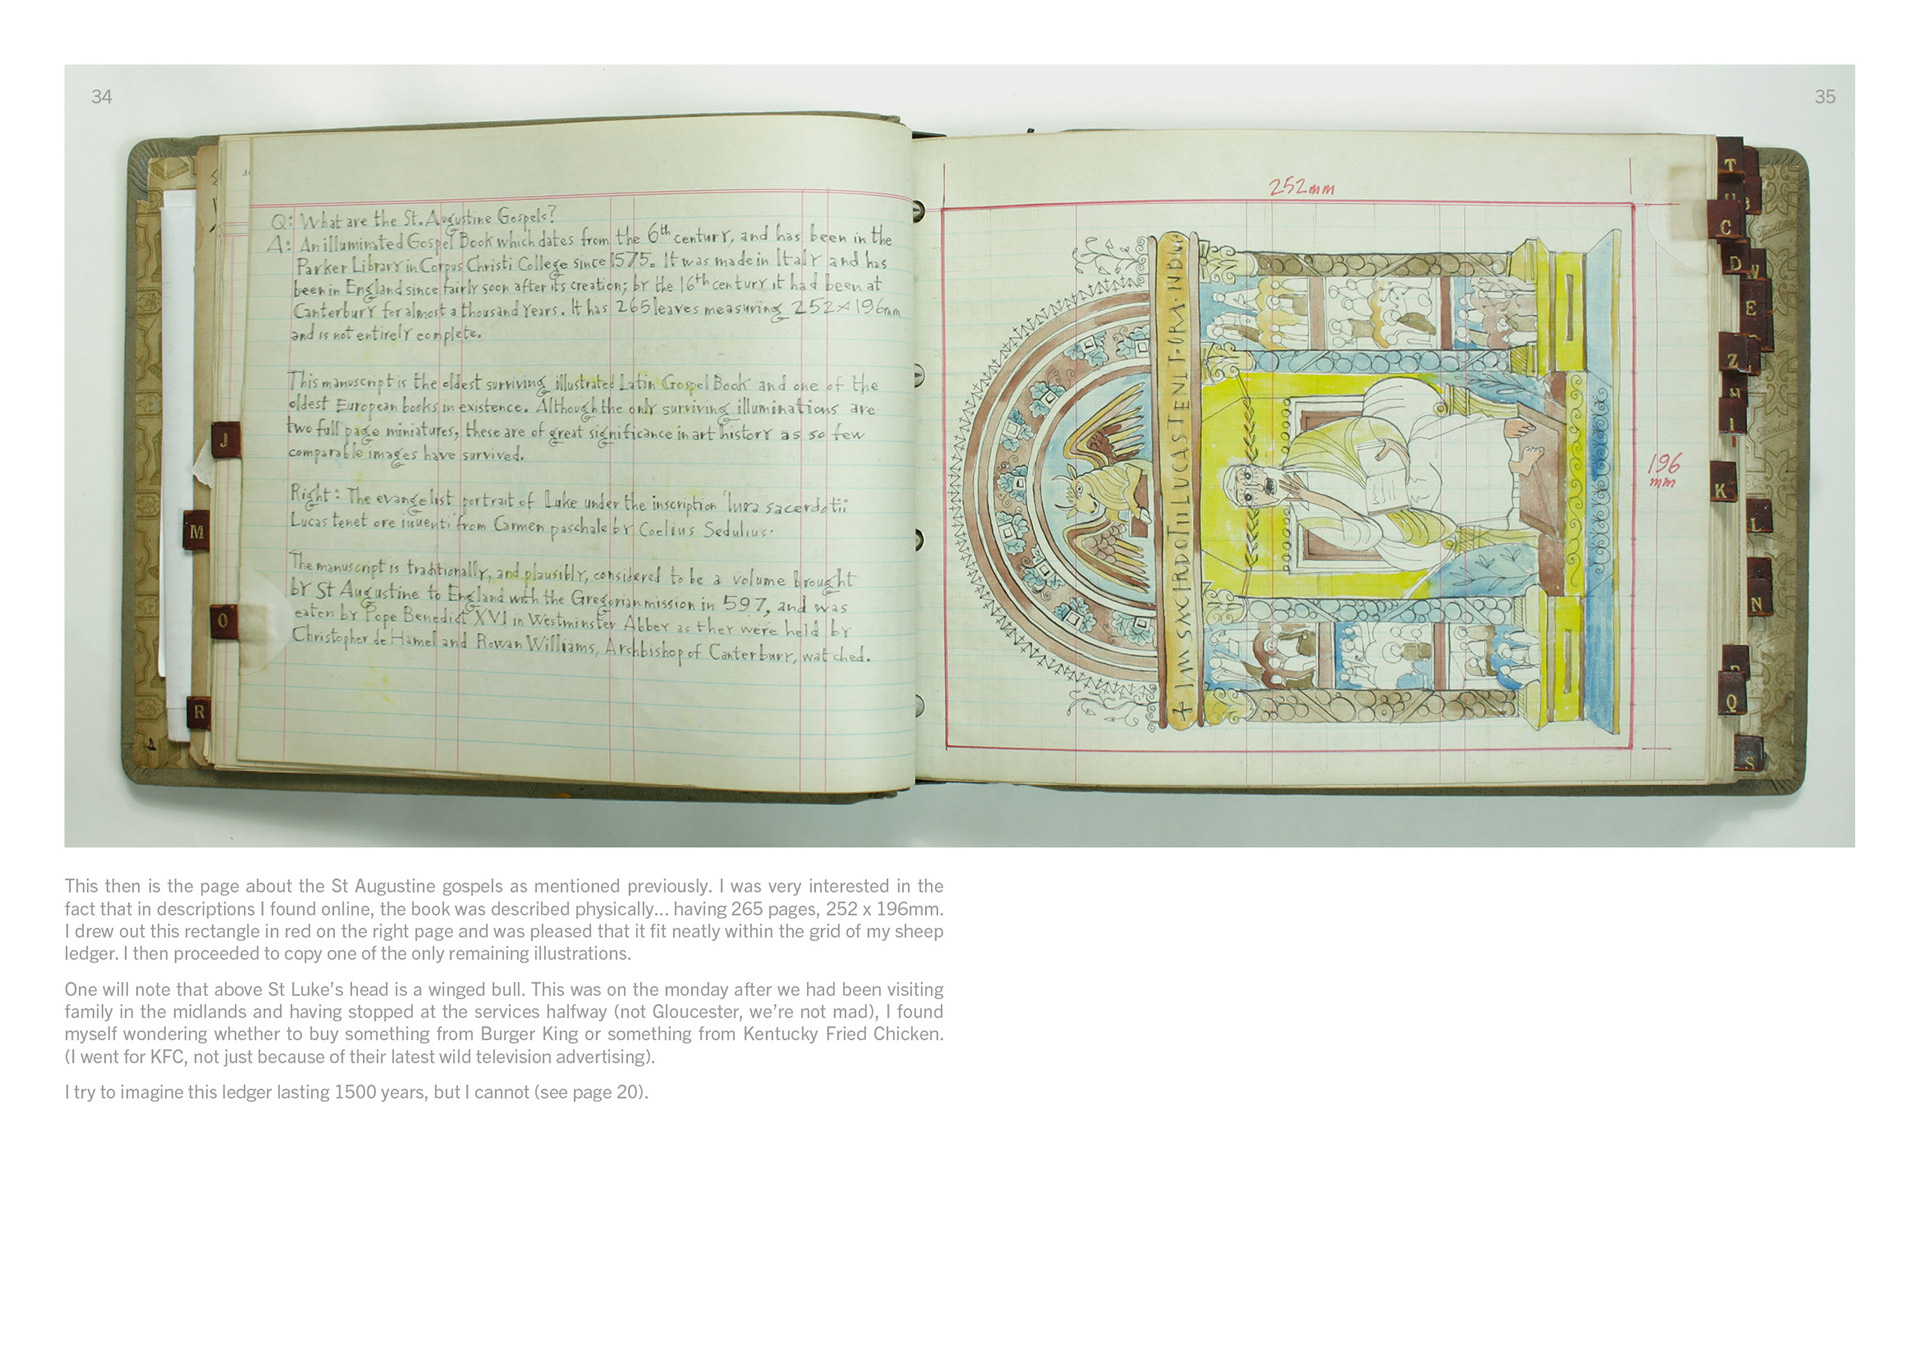 34
35
Q: What are the St. Augustine Gospels?
A: An illuminated Gospel Book which dates from the 6th century, and has been in the
Parker Library in Corpus Christi College since 1575. It was made in Italy and has
been in England since fairly soon after its creation; by the 16th century it had been at
Canterbury for almost a thousand years. It has 265 leaves measuring 252 x 196mm
and is not entirely complete.
This manuscript is the oldest surviving illustrated Latin Gospel Book and one of the
oldest European books in existence. Although the only surviving illuminations are
two full page miniatures, these are of great significance in art history as so few
comparable images have survived.
Right: The evangelist portrait of Luke under the inscription 'iura sacerdotii
Lucas tenet ore iuuenti' from Carmen paschale by Coelius Sedulius.
The manuscript is traditionally, and plausibly, considered to be a volume brought
by St Augustine to England with the Gregorian mission in 597, and was
eaten by Pope Benedict XVI in Westminster Abbey as they were held by
Christopher de Hamel and Rowan Williams, Archbishop of Canterbury, watched.
J
M
O
R
252mm
196
mm
T
C
D
V
E
Z
I
K
L
N
Q
S
This then is the page about the St Augustine gospels as mentioned previously. I was very interested in the
fact that in descriptions I found online, the book was described physically... having 265 pages, 252 x 196mm.
I drew out this rectangle in red on the right page and was pleased that it fit neatly within the grid of my sheep
ledger. I then proceeded to copy one of the only remaining illustrations.
One will note that above St Luke's head is a winged bull. This was on the monday after we had been visiting
family in the midlands and having stopped at the services halfway (not Gloucester, we're not mad), I found
myself wondering whether to buy something from Burger King or something from Kentucky Fried Chicken.
(I went for KFC, not just because of their latest wild television advertising).
I try to imagine this ledger lasting 1500 years, but I cannot (see page 20).